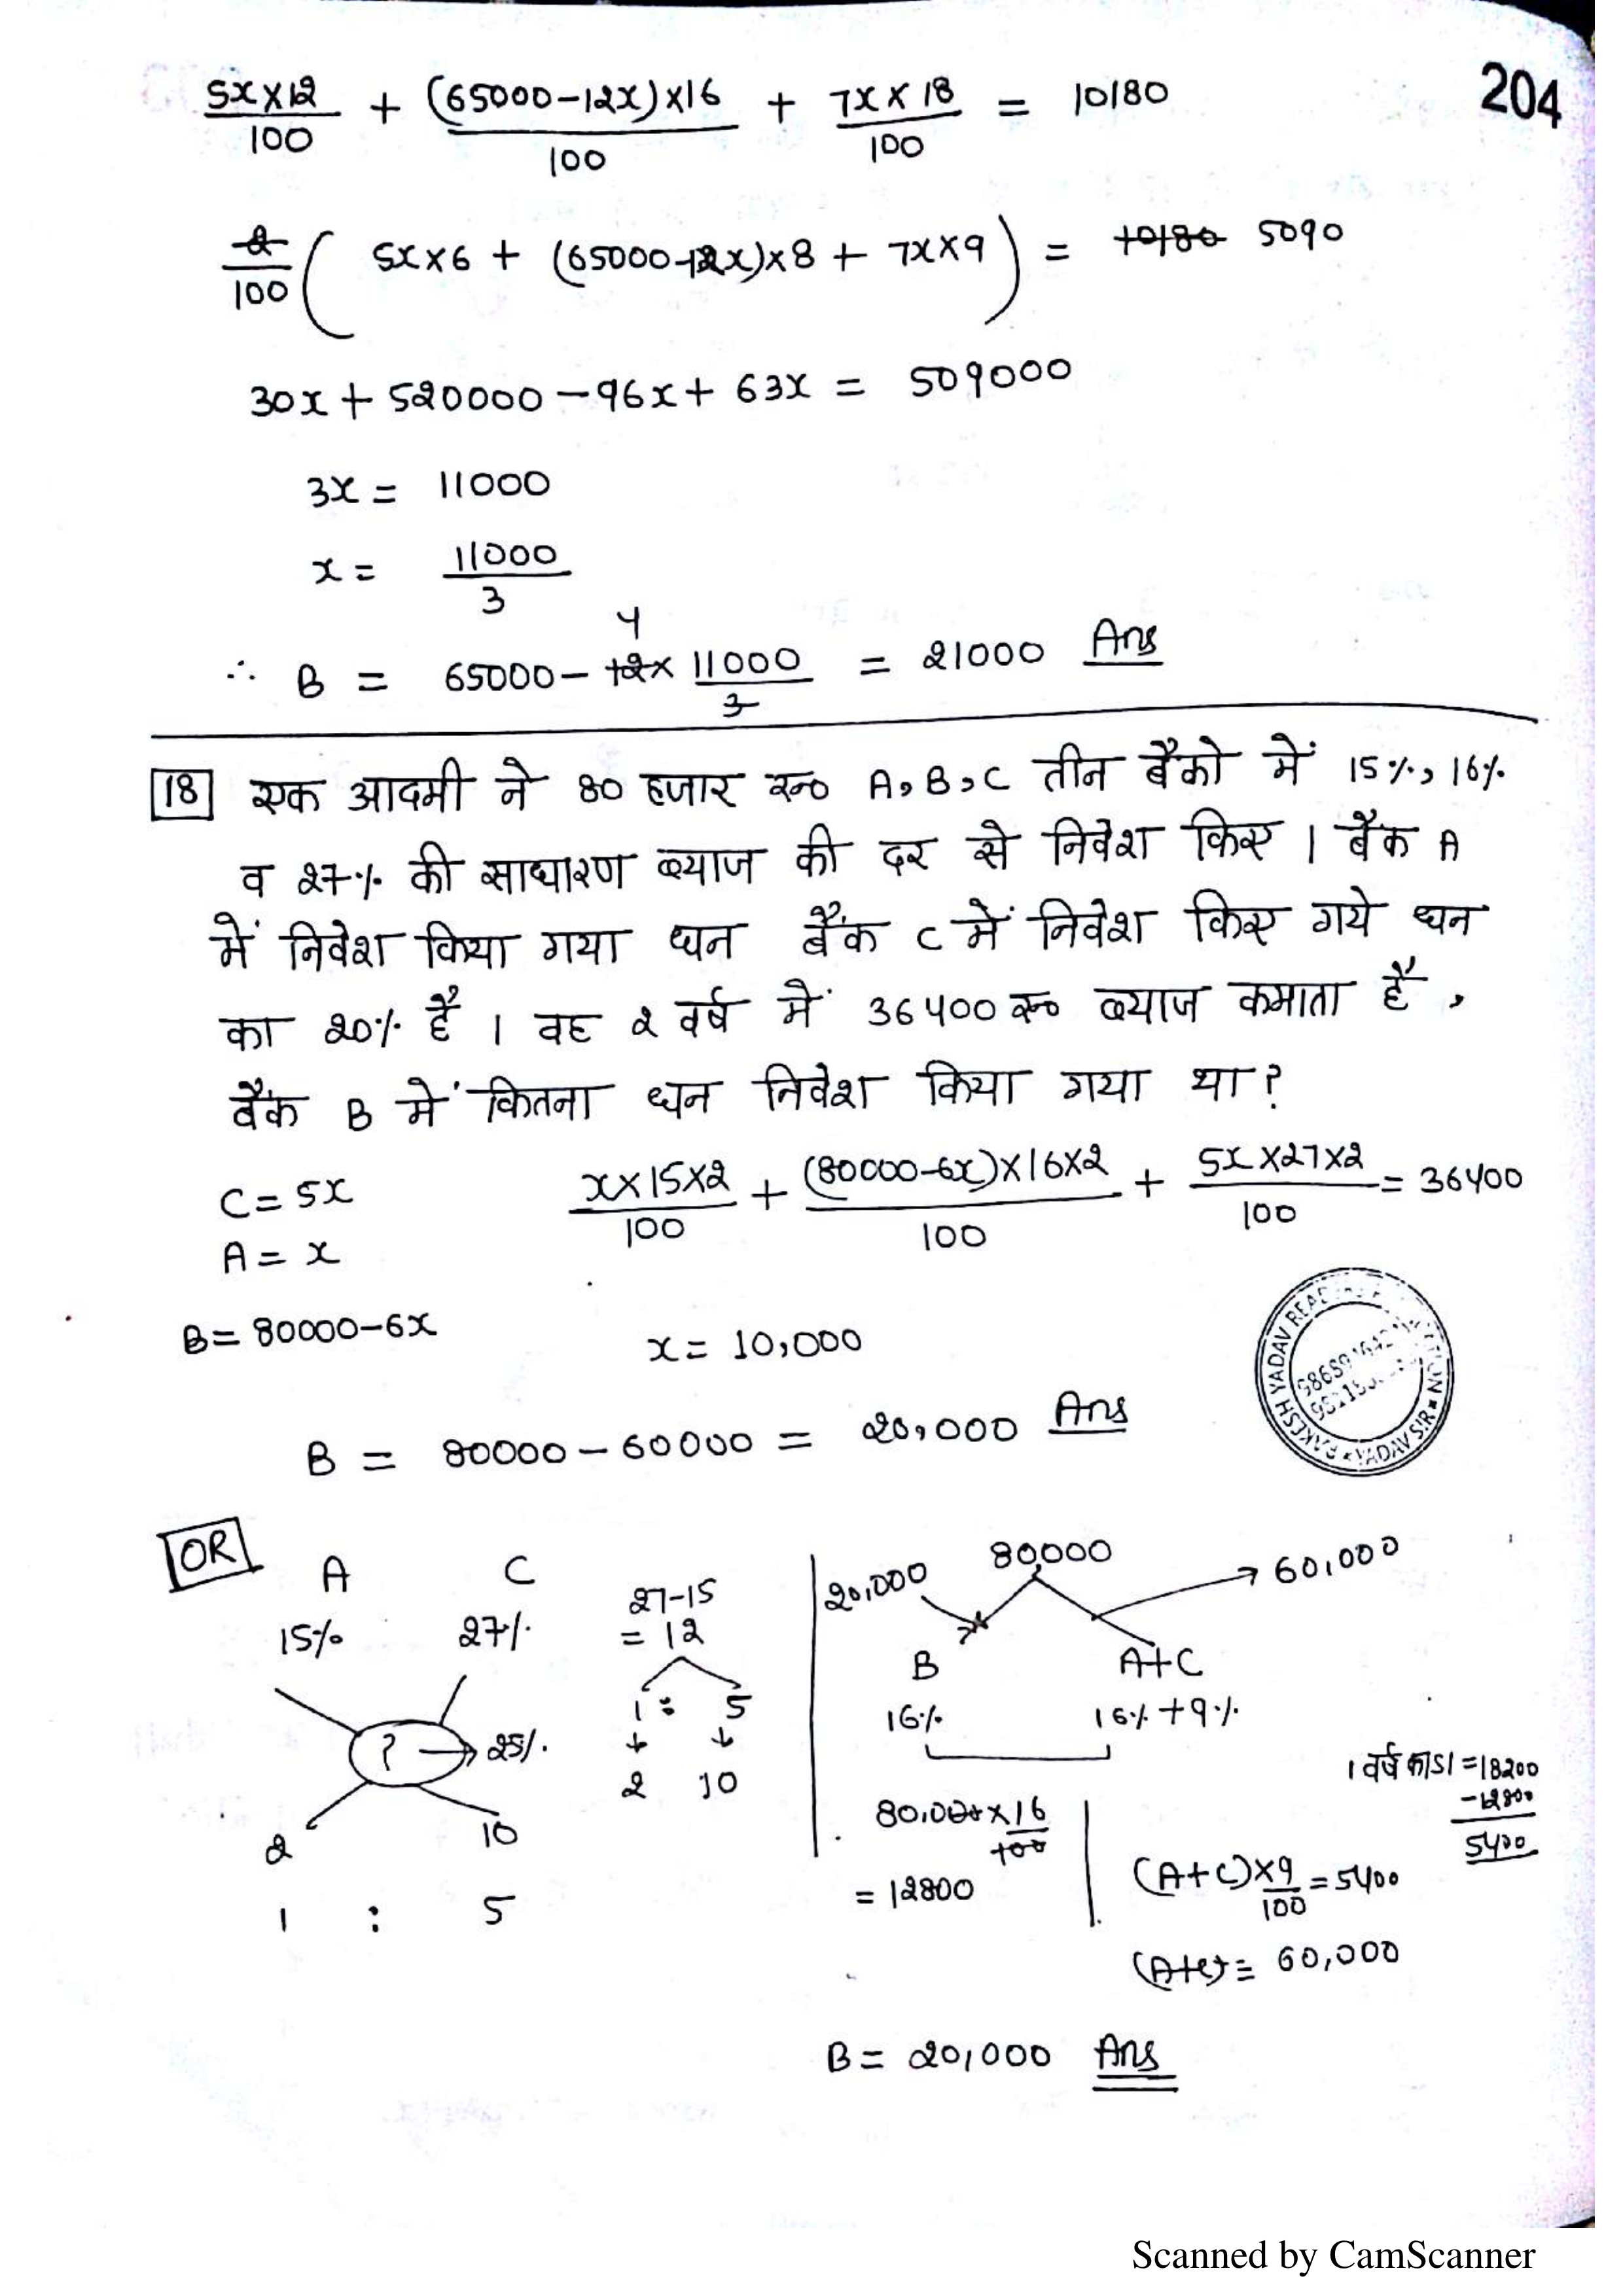 204
5x×12/100 + (65000-12x)×16/100 + 7x×18/100 = 10180
2/100 ( 5x×6 + (65000-12x)×8 + 7x×9 ) = 10180 5090
30x + 520000 - 96x + 63x = 509000
3x = 11000
x = 11000/3
∴ B = 65000 - 12 4 × 11000/3 = 21000 Ans
18 एक आदमी ने 80 हजार रू० A, B, C तीन बैंको में 15%, 16%
व 27% की साधारण ब्याज की दर से निवेश किए । बैंक A
में निवेश किया गया धन बैंक C में निवेश किए गये धन
का 20% है । वह 2 वर्ष में 36400 रू० ब्याज कमाता है,
बैंक B में कितना धन निवेश किया गया था?
C = 5x
x×15×2/100 + (80000-6x)×16×2/100 + 5x×27×2/100 = 36400
A = x
B = 80000-6x
x = 10,000
B = 80000 - 60000 = 20,000 Ans
RAKESH YADAV SIR
OR
A C
15% 27%
? → 25%
2 10
1 : 5
27-15
= 12
1 : 5
↓ ↓
2 10
20,000 80,000 → 60,000
B A+C
16% 16% + 9%
80,000 × 16/100
= 12800
1 वर्ष का SI = 18200
-12800
5400
(A+C)×9/100 = 5400
(A+C) = 60,000
B = 20,000 Ans
Scanned by CamScanner